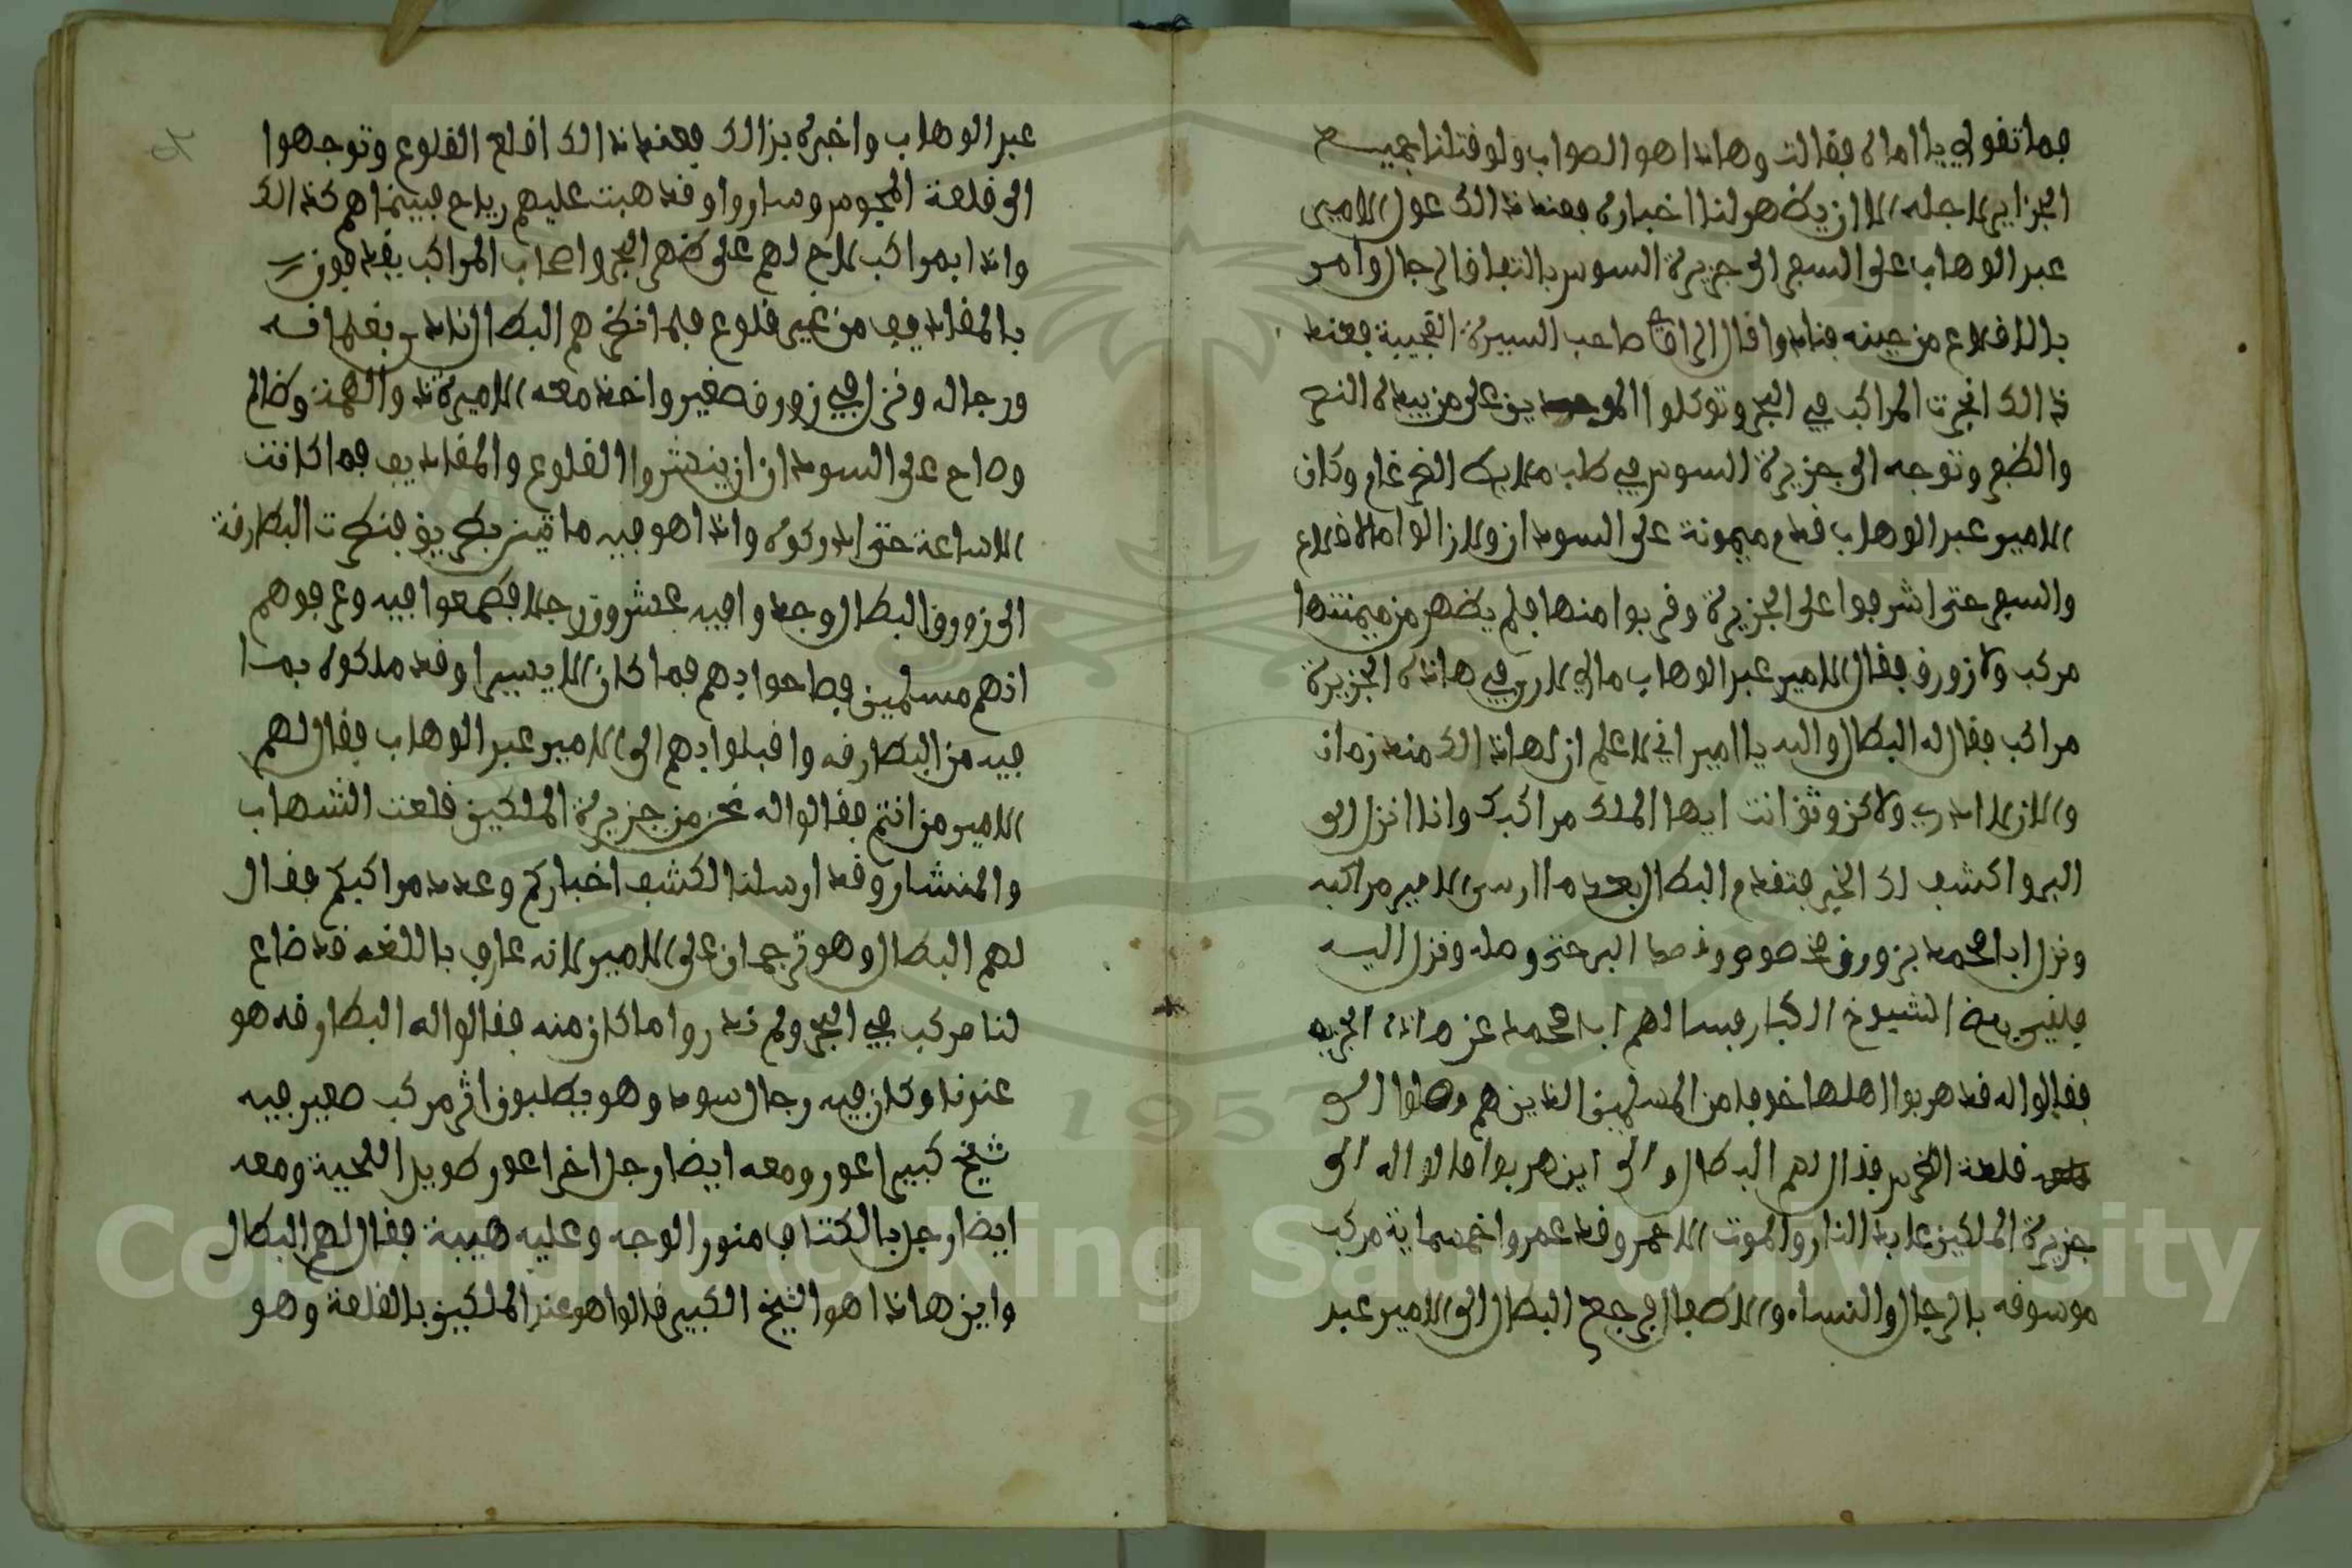 فما تقولي يا اماه فقالت وهاذا هو الصواب ولو قتلنا جميع
الجزاير لاجله الا ان يظهر لنا اخباره فعند ذالك عول الامير
عبد الوهاب على السفر الى جزيرة السوس بالتعاق الرجال وامر
بالاقلاع من حينه فنادوا قال الراوي صاحب السيرة العجيبة فعند
ذالك انجرت المراكب في البحر وتوكلوا الموحدين على من بيده النصر
والظفر وتوجه الى جزيرة السوس في طلب ملايك الضرغام وكان
الامير عبد الوهاب قدم ميمونة على السودان ولازالوا ملافلاع
والسفر حتى اشرفوا على الجزيرة وقربوا منها فلم يظهر من ميمنتها
مركب ولا زورق فقال الامير عبد الوهاب مالي لاري في هاذه الجزيرة
مراكب فقال له البطال والله يا امير اني لاعلم ان لها ذالك منذ زمان
والان لا ادري ولاكن وثق انت ايها الملك مراكبك وانا انزل الى
البر واكشف لك الخبر فتقدم البطال بعد ما ارسى الامير مراكبه
ونزل ابا محمد بزورق مخصوص وقصد البر حتى وصله ونزل اليه
فلقي بعض الشيوخ الكبار فسالهم ابا محمد عن هاذه الجزيره
فقالوا له قد هربوا اهلها خوفا من المسلمين الذين هم وصلوا الى
قلعة الخرس فقال لهم البطال والى اين هربوا قالوا له الى
جزيرة الملكين عابد النار والموت الاحمر وقد عمروا خمسماية مركب
موسوقه بالرجال والنساء والاطفال فرجع البطال الى الامير عبد
عبد الوهاب واخبره بذالك فعند ذالك اقلع القلوع وتوجهوا
الى قلعة المجوس وساروا وقد هبت عليهم رياح فبينما هم كذالك
واذا بمراكب لاح لهم على ظهر البحر واصحاب المراكب يقذفون
بالمقاذيف من غير قلوع فلما نظرهم البطال نادى بغلمانه
ورجاله ونزل في زورق صغير واخذ معه الاميرة ذوالهمة وظالم
وصاح على السودان ان ينشروا القلوع والمقاذيف فما كانت
الاساعة حتى ادركوه واذا هو فيه مايتين بطريق فنظرت البطارقة
الى زورق البطال وجدوا فيه عشرون رجلا فطمعوا فيه وعرفوهم
انهم مسلمين فصاحوا بهم فما كان الا يسيرا وقد ملكوه بمن
فيه من البطارقه واقبلوا بهم الى الامير عبد الوهاب فقال لهم
الامير من انتم فقالوا له نحن من جزيرة الملكين قلعت الشهاب
والمنشار وقد ارسلنا لكشف اخباركم وعدد مراكبكم فقال
لهم البطال وهو ترجمان على الامير لانه عارف باللغه قد ضاع
لنا مركب في البحر ولم ندروا ما كان منه فقالوا له البطارقه هو
عندنا وكان فيه رجال سود وهو يطلبون اثر مركب صغير فيه
شيخ كبير اعور ومعه ايضا رجل اخر اعور طويل اللحية ومعه
ايضا رجل بالكتاف منور الوجه وعليه هيبة فقال لهم البطال
واين هاذا هو الشيخ الكبير قالوا هو عند الملكين بالقلعة وهو
Copyright © King Saud University
1957